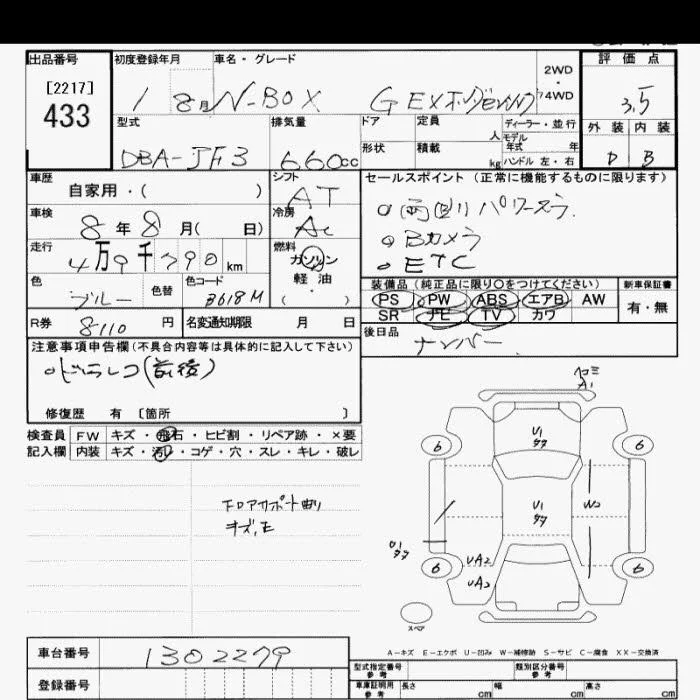 出品番号
[2217]
433
初度登録年月
車名・グレード
1 8月 N-BOX G EXホンダセンシング
2WD
・
4WD
評価点
3.5
外装 内装
D B
型式
DBA-JF3
排気量
660cc
ドア
形状
定員
人
積載
kg
ディーラー・並行
モデル
年式 年
ハンドル 左・右
車歴
自家用・( )
シフト
AT
車検
8年8月( 日)
冷房
AC
走行
4万9千790km
燃料
ガソリン
軽油
( ・ )
色
ブルー
色替
色コード
B618M
R券
8110円
名変通知期限 月 日
セールスポイント (正常に機能するものに限ります)
○両側パワースラ
○Bカメラ
○ETC
装備品 (純正品に限り○をつけてください)
PS PW ABS エアB AW
SR ナビ TV カワ
新車保証書
有・無
後日品
ナンバー
注意事項申告欄 (不具合内容等は具体的に記入して下さい)
・ドラレコ(前後)
修復歴 有 〔箇所 〕
検査員
記入欄
FW キズ・飛石・ヒビ割・リペア跡・×要
内装 キズ・汚れ・コゲ・穴・スレ・キレ・破レ
下ロアサポート曲り
キズ,E
ヘコミ
A1
U1
タタ
6
6
U1
タタ
W2
U1
タタ
UA2
UA2
6
6
スペア
A-キズ E-エクボ U-凹み W-補修跡 S-サビ C-腐食 XX-交換済
車台番号
1302279
登録番号
型式指定番号
参考
類別区分番号
参考
車庫証明用
参考
長さ cm
幅 cm
高さ cm